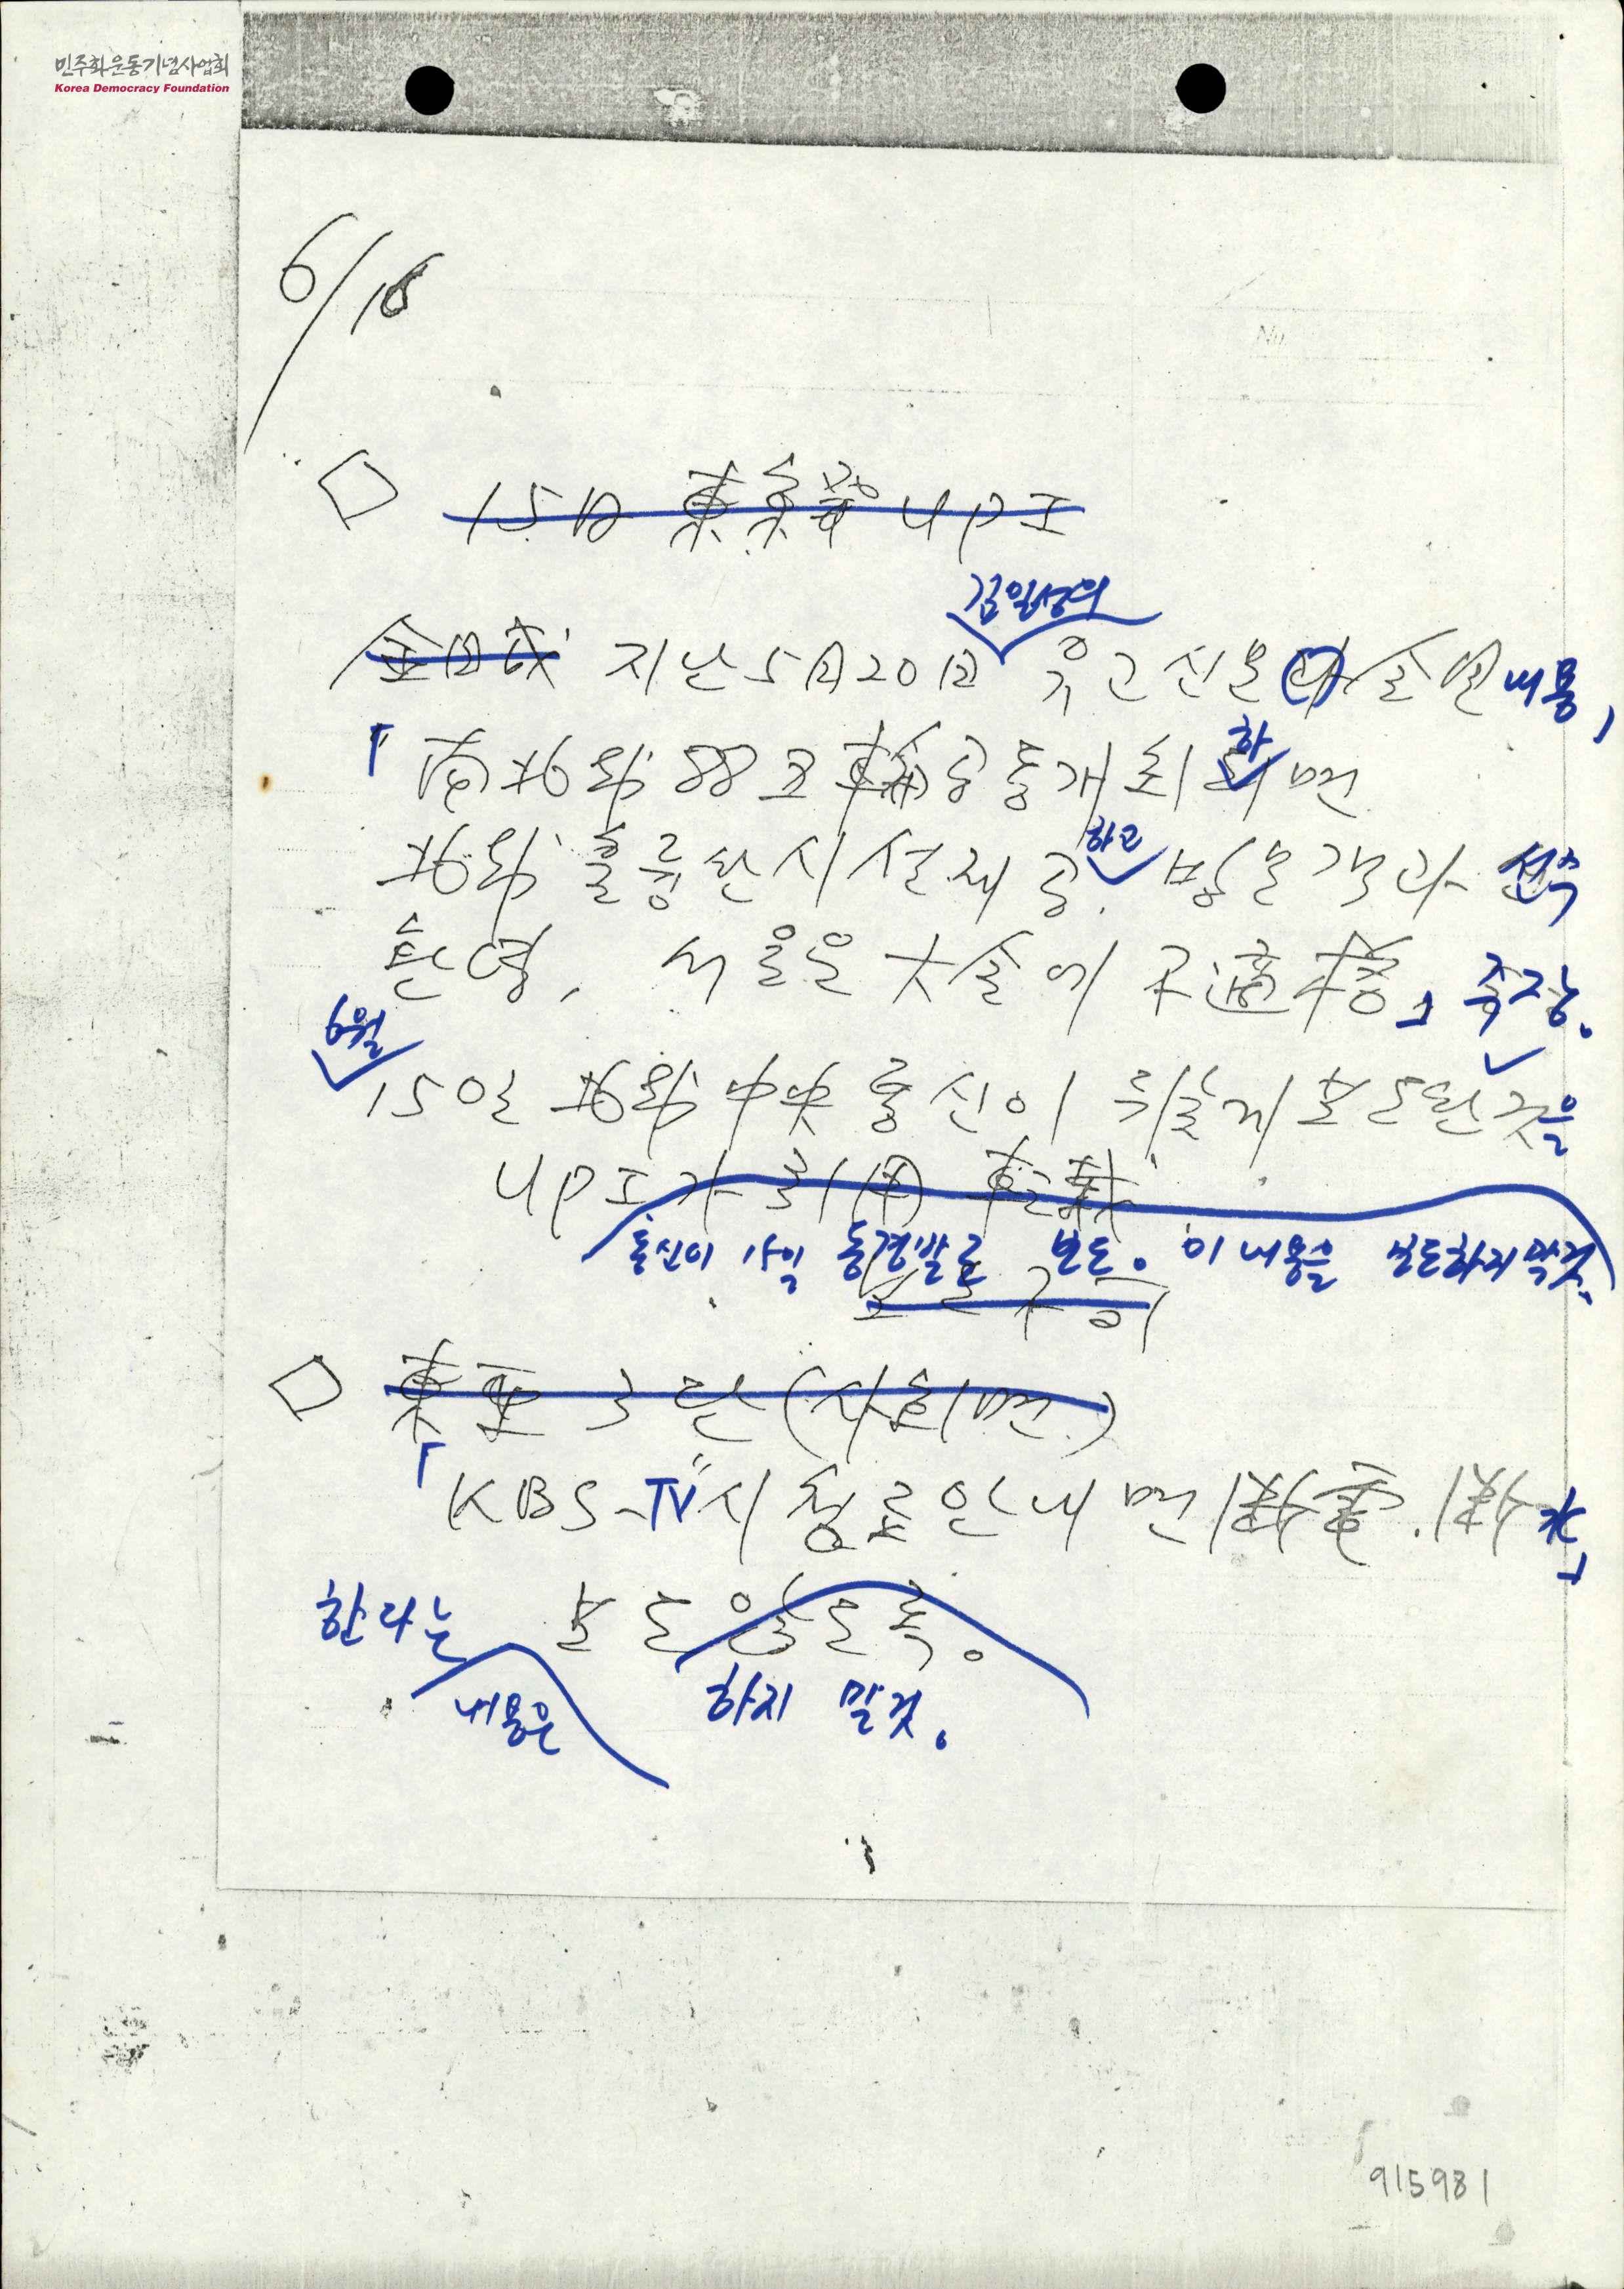 민주화운동기념사업회
Korea Democracy Foundation
6/16
15日 東京發 UPI
김일성의
金日成 지난 5月 20日 유고신문 내용,
「南北韓 88 공동개최 하면
北韓 훌륭한 시설 제공. 하고 방문객과 선수
환영, 서울은 大会에 不適格」 주장.
6월
15일 北韓 中央통신이 뒤늦게 보도된 것을
UPI가 引用 転載
통신이 15일 동경발로 보도. 이 내용을 보도하지 말것.
보도 不可
東亜 3단 (사회면)
「KBS-TV 시청료 안내면 斷電. 斷水」
한다는 보도 않도록.
내용은 하지 말것.
915981